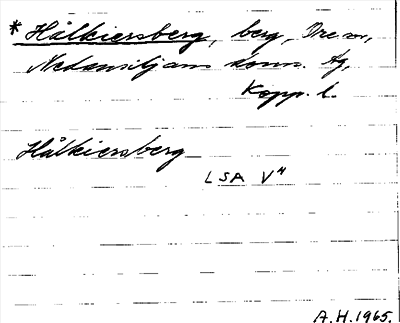 * Hålkiersberg, berg, Ore sn,
Nedansiljans doms. tg,
Kopp. l.
Hålkiersberg
LSA V"
A.H. 1965.